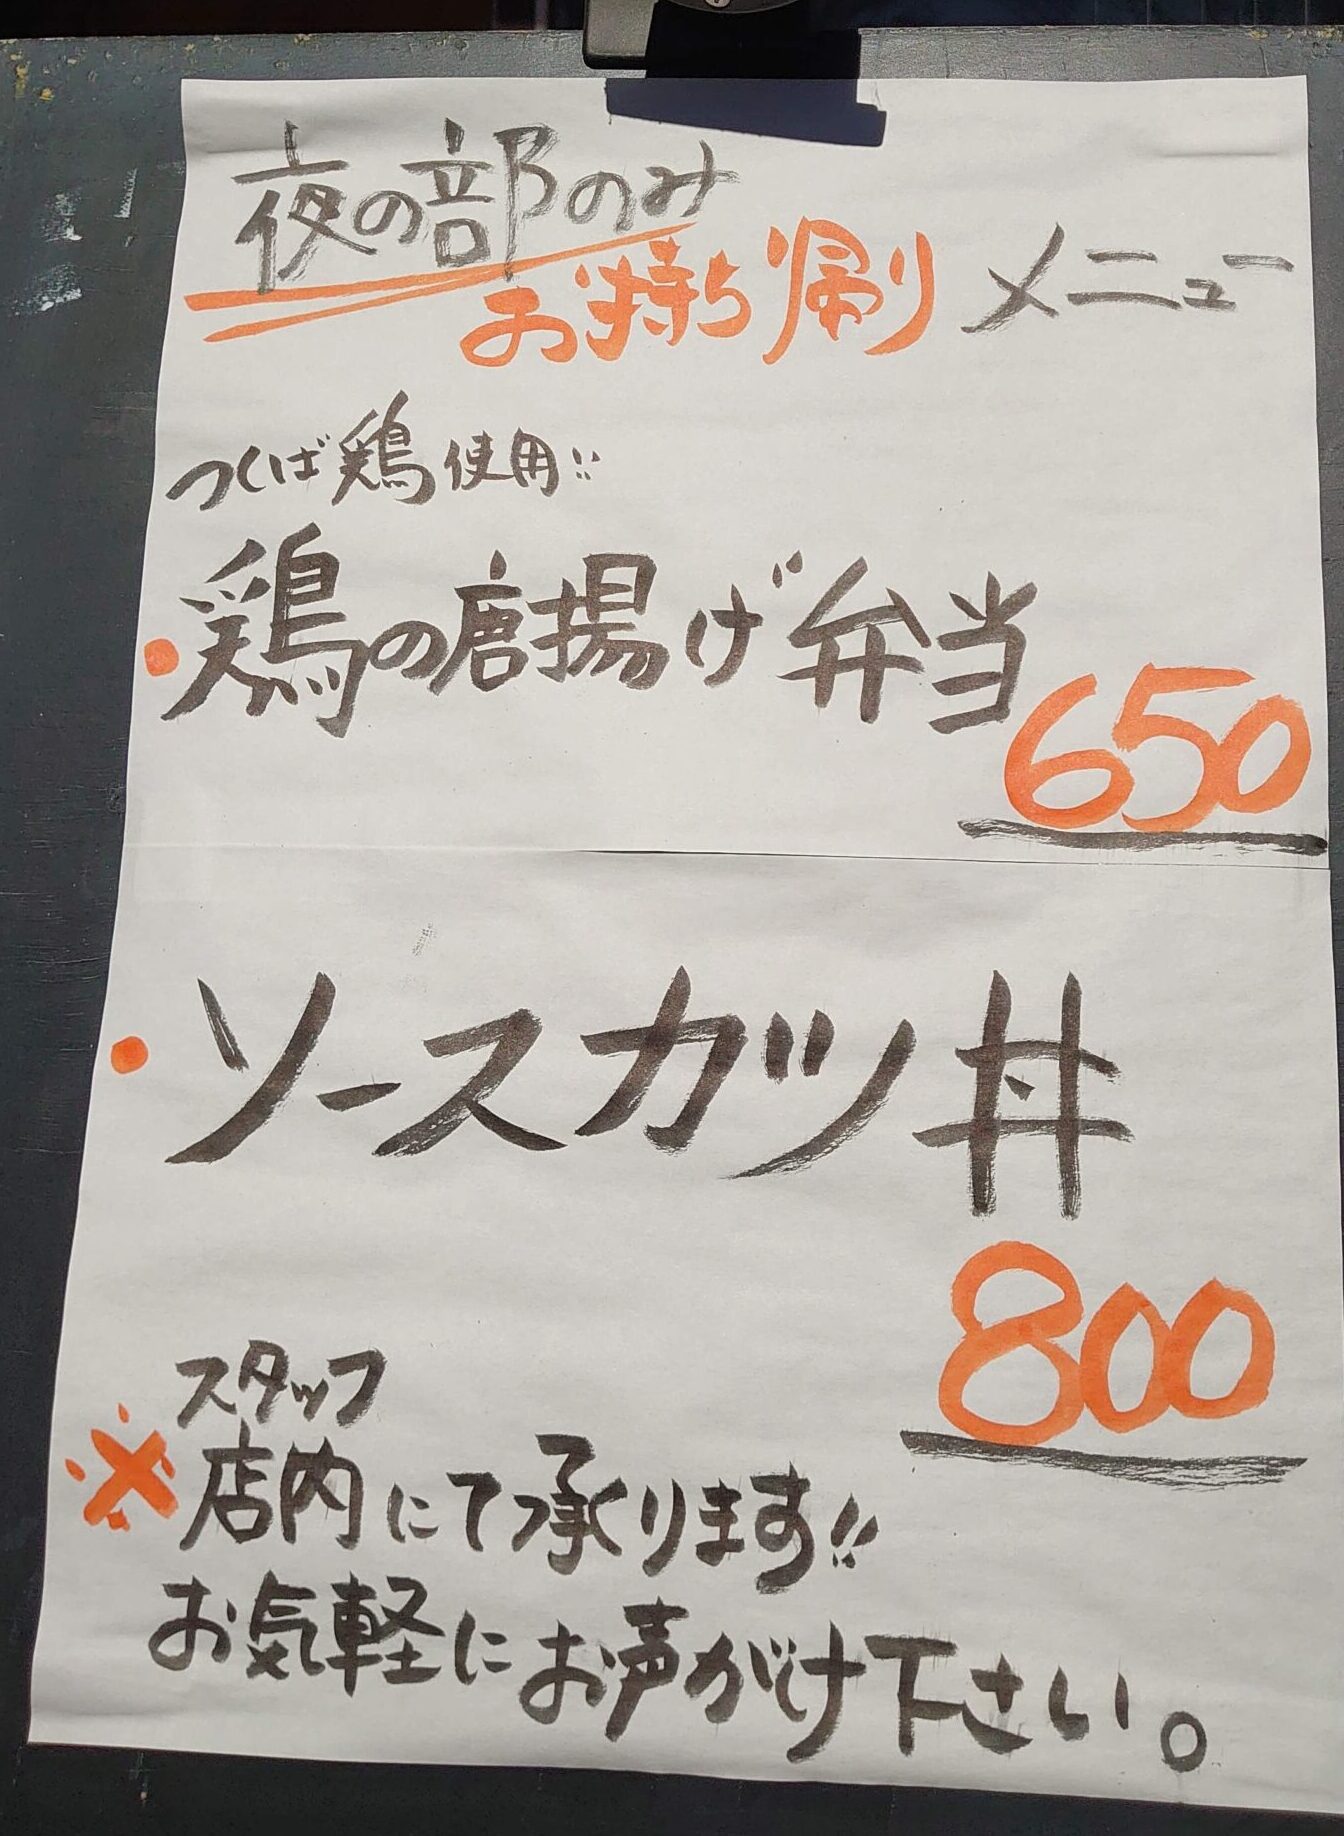 夜の部のみ
お持ち帰り メニュー
つくば鶏使用!!
・鶏の唐揚げ弁当
650
・ソースカツ丼
800
スタッフ
※店内にて承ります!!
お気軽にお声がけ下さい。